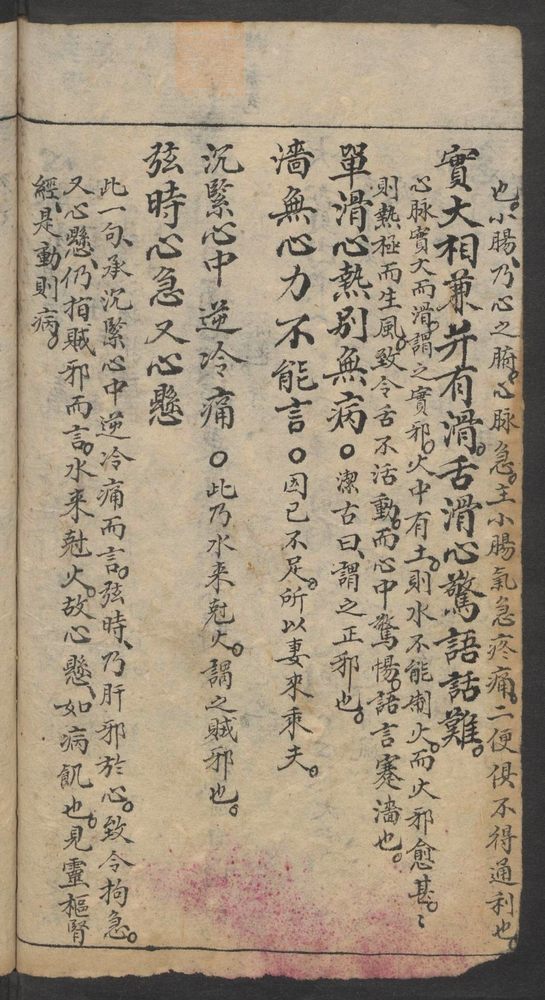 也。小腸、乃心之腑。心脉急。主小腸氣急疼痛。二便俱不得通利也。
實大相兼并有滑。舌滑心驚語話難。
心脉實大而滑。謂之實邪。火中有土。則水不能制火。而火邪愈甚。〻
則熱極而生風。致令舌不活動。而心中驚惕。語言蹇濇也。
單滑心熱别無病。○潔古曰、謂之正邪也。
濇無心力不能言。○因己不足。所以妻來乘夫。
沉緊心中逆冷痛○此乃水来尅火。謂之賊邪也。
弦時心急又心懸
此一句、承沉緊心中逆冷痛而言。弦時、乃肝邪於心。致令拘急。
又心懸、仍指賊邪而言。水来尅火。故心懸、如病飢也。見靈樞腎
經、是動則病。